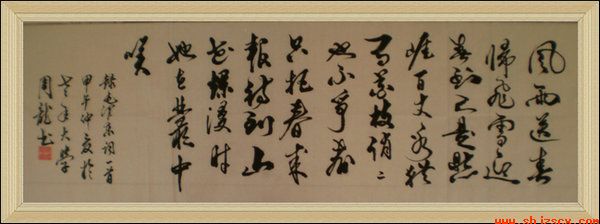 風雨送春
歸飛雪迎
春到已是懸
崖百丈冰猶
有花枝俏〻
也不爭春
只把春來
報待到山
花爛漫时
她在叢中
咲
錄毛澤東詞一首
甲午仲夏於
老年大學
周龍书
www.sbjzscw.com